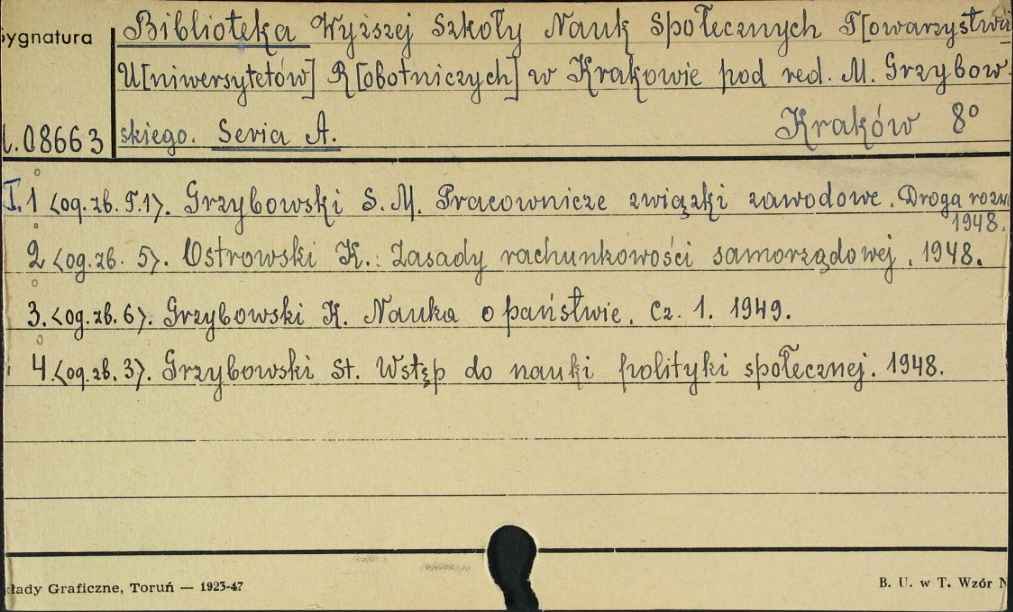 Sygnatura
Biblioteka Wyższej Szkoły Nauk Społecznych T[owarzystwa
U[niwersytetów] R[obotniczych] w Krakowie pod red. M. Grzybow-
08663 skiego. Seria A. Kraków 8°
I.1 <og.zb. T.1>. Grzybowski S.M. Pracownicze związki zawodowe. Droga
1948.
2 <og.zb. 5>. Ostrowski K.: Zasady rachunkowości samorządowej. 1948.
3. <og.zb. 6>. Grzybowski K. Nauka o państwie. Cz. 1. 1949.
4. <og.zb. 3>. Grzybowski St. Wstęp do nauki polityki społecznej. 1948.
łady Graficzne, Toruń — 1923-47
B. U. w T. Wzór N